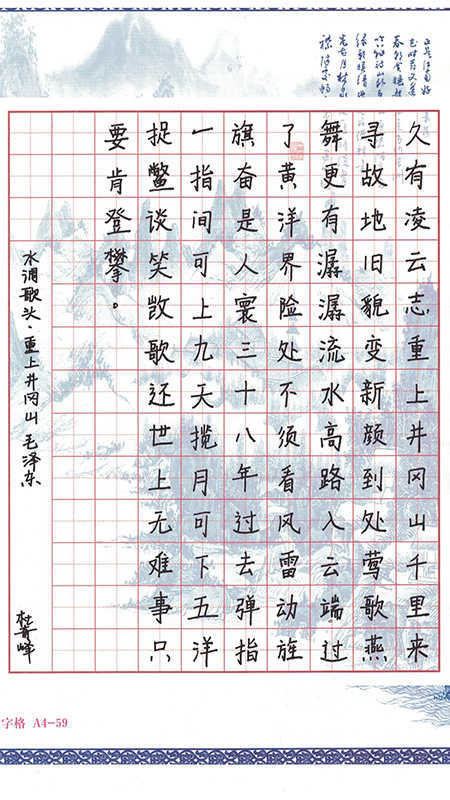 久有凌云志重上井冈山千里来
寻故地旧貌变新颜到处莺歌燕
舞更有潺潺流水高路入云端过
了黄洋界险处不须看风雷动旌
旗奋是人寰三十八年过去弹指
一指间可上九天揽月可下五洋
捉鳖谈笑凯歌还世上无难事只
要肯登攀。
水调歌头·重上井冈山 毛泽东
字格 A4-59